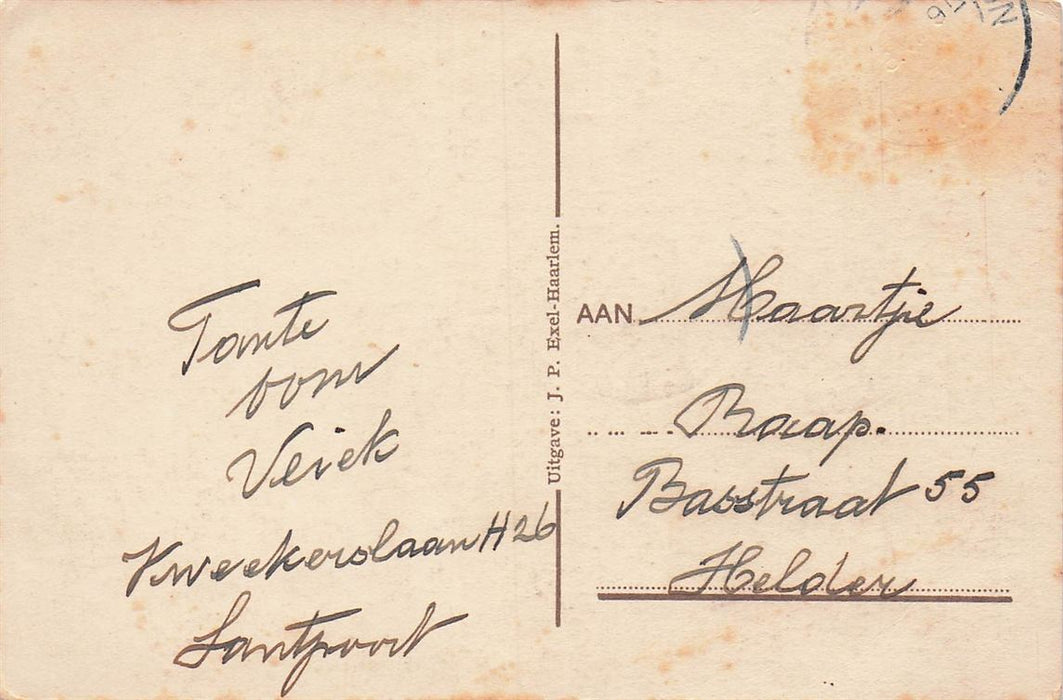 Tante
oom
Veiek
Kweekerslaan H26
Santpoort
Uitgave: J. P. Exel-Haarlem.
AAN Maartje
Baap.
Basstraat 55
Helder